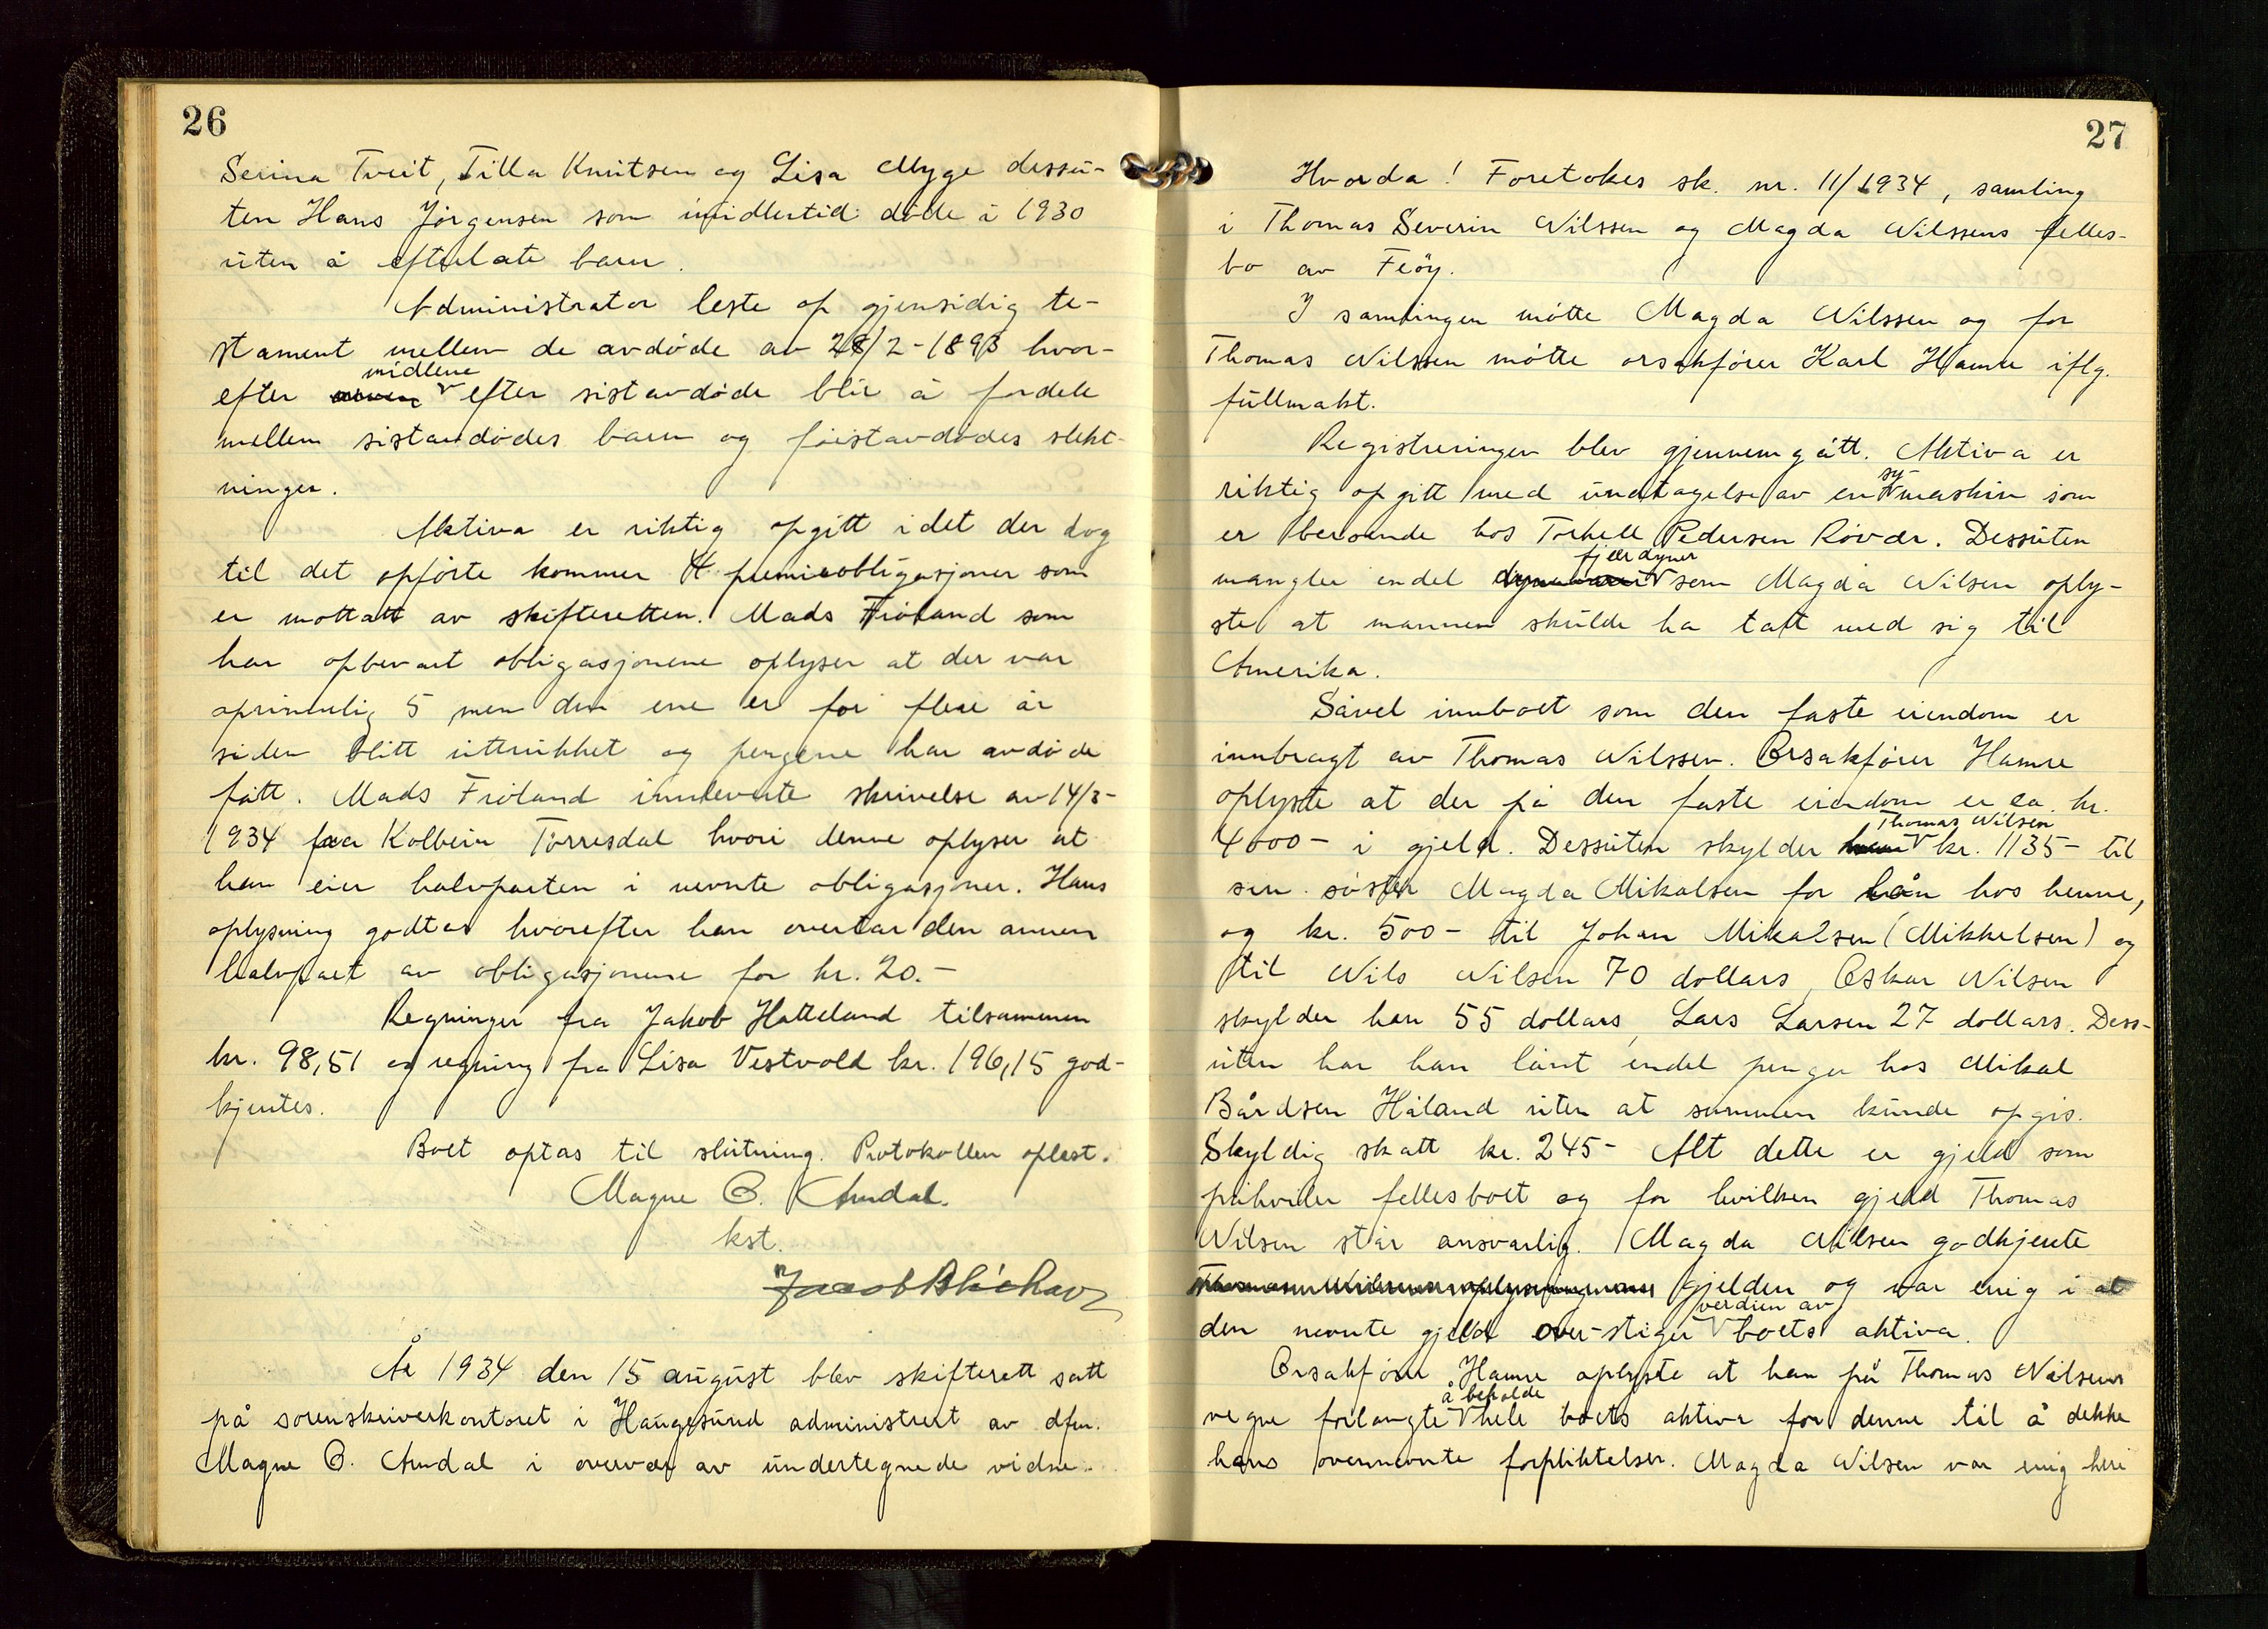 26
Serina Tveit, Tilla Knutsen og Lisa Myge dessu-
ten Hans Jørgensen som imidlertid døde i 1930
uten å efterlate barn.
Administrator leste op gjensidig te-
stament mellem de avdøde av 28/2-1893 hvor-
efter midlene efter sistavdøde blir å fordele
mellem sistavdødes barn og førstavdødes slekt-
ninger.
Aktiva er riktig opgitt idet der dog
til det opførte kommer 4 premieobligasjoner som
er mottatt av skifteretten. Mads Frøland som
har opbevart obligasjonene oplyser at der var
oprinnelig 5 men den ene er for flere år
siden blitt uttrukket og pengene har avdøde
fått. Mads Frøland innleverte skrivelse av 14/3-
1934 fra Kolbein Torresdal hvori denne oplyser at
han eier halvparten i nevnte obligasjoner. Hans
oplysning godtas hvorefter han overtar den annen
halvpart av obligasjonene for kr. 20.-
Regninger fra Jakob Hatteland tilsammen
kr. 98,51 og regning fra Lisa Vestvold kr. 196,15 god-
kjentes.
Boet optas til slutning. Protokollen oplest.
Magne O. Amdal.
kst.
Jacob
År 1934 den 15 august blev skifterett satt
på sorenskriverkontoret i Haugesund administrert av dfm.
Magne O. Amdal i overvær av undertegnede vidne.
27
Hvorda! Foretokes sk. nr. 11/1934, samling
i Thomas Severin Nilssen og Magda Nilssens felles-
bo av Feøy.
I samlingen møtte Magda Nilssen og for
Thomas Nilssen møtte orsakfører Karl Hamre iflg.
fullmakt.
Registreringen blev gjennemgått. Aktiva er
riktig opgitt med undtagelse av en sy-maskin som
er beroende hos Torkell Pedersen Røvær. Dessuten
mangler endel fjærdyner som Magda Nilsen oply-
ste at mannen skulde ha tatt med sig til
Amerika.
Såvel innboet som den faste eiendom er
innbragt av Thomas Nilssen. Orsakfører Hamre
oplyste at der på den faste eiendom er ca. kr.
4000- i gjeld. Dessuten skylder Thomas Nilsen kr. 1135- til
sin søster Magda Mikalsen for lån hos henne,
og kr. 500- til Johan Mikalsen (Mikkelsen) og
til Nils Nilsen 70 dollars, Oskar Nilsen
skylder han 55 dollars, Lars Larsen 27 dollars. Dess-
uten har han lånt endel penger hos Mikal
Bårdsen Håland uten at summen kunde opgis.
Skyldig skatt kr. 245- Alt dette er gjeld som
påhviler fellesboet og for hvilken gjeld Thomas
Nilsen står ansvarlig. Magda Nilsen godkjente
gjelden og var enig i at
den nevnte gjeld over-stiger verdien av boets aktiva.
Orsakfører Hamre oplyste at han på Thomas Nilsens
vegne forlangte å beholde hele boets aktiva for denne til å dekke
hans ovennevnte forpliktelser. Magda Nilsen var enig heri